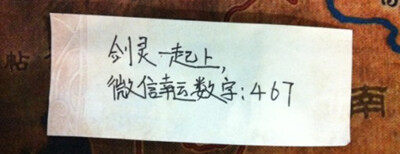 剑灵一起上,
微信幸运数字:467
帖
南